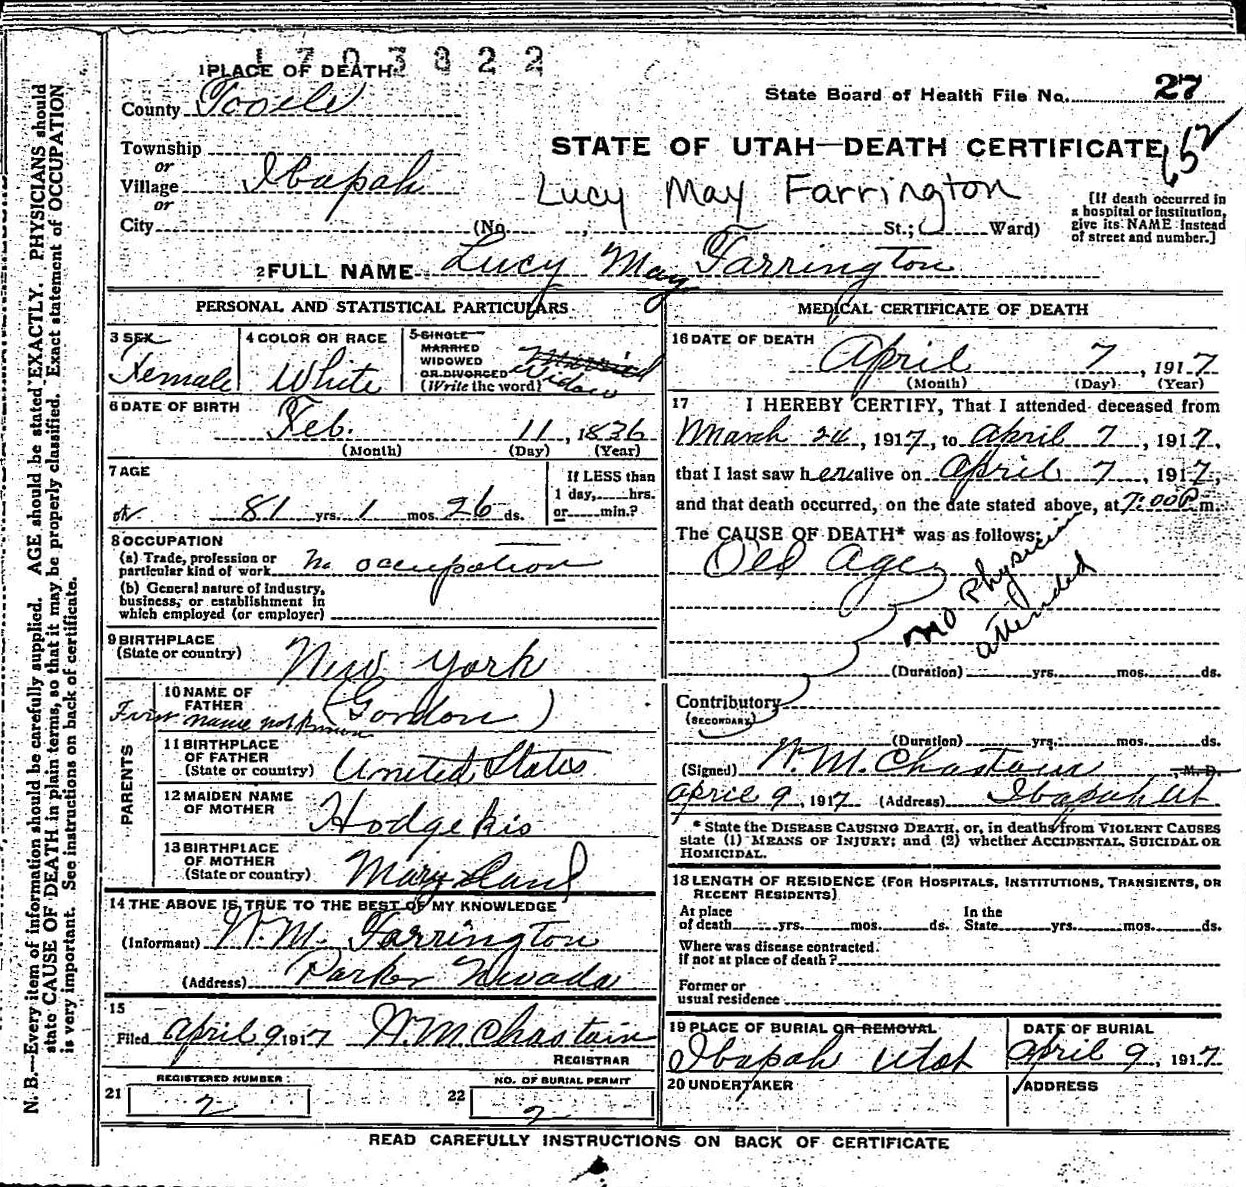 1703822
1 PLACE OF DEATH
County Tooele
State Board of Health File No. 27
Township
or
Village Ibapah
or
City (No. , St.; Ward)
STATE OF UTAH—DEATH CERTIFICATE 152
Lucy May Farrington
[If death occurred in
a hospital or institution,
give its NAME instead
of street and number.]
2 FULL NAME Lucy May Farrington
PERSONAL AND STATISTICAL PARTICULARS
3 SEX
Female
4 COLOR OR RACE
White
5 SINGLE
MARRIED
WIDOWED
OR DIVORCED
(Write the word)
Married
Widow
6 DATE OF BIRTH
Feb. 11, 1836
(Month) (Day) (Year)
7 AGE
81 yrs. 1 mos. 26 ds.
If LESS than
1 day, hrs.
or min.?
8 OCCUPATION
(a) Trade, profession or
particular kind of work No occupation
(b) General nature of industry,
business, or establishment in
which employed (or employer)
9 BIRTHPLACE
(State or country) New York
PARENTS
10 NAME OF
FATHER
First name not known (Gordon)
11 BIRTHPLACE
OF FATHER
(State or country) United States
12 MAIDEN NAME
OF MOTHER Hodgekis
13 BIRTHPLACE
OF MOTHER
(State or country) Mary Land
14 THE ABOVE IS TRUE TO THE BEST OF MY KNOWLEDGE
(Informant) W.M. Farrington
(Address) Parker Nevada
15
Filed April 9 1917 W M Chastain
REGISTRAR
REGISTERED NUMBER
21 2
NO. OF BURIAL PERMIT
22 2
MEDICAL CERTIFICATE OF DEATH
16 DATE OF DEATH
April 7, 1917
(Month) (Day) (Year)
17 I HEREBY CERTIFY, That I attended deceased from
March 24, 1917, to April 7, 1917,
that I last saw her alive on April 7, 1917,
and that death occurred, on the date stated above, at 7:00 P m.
The CAUSE OF DEATH* was as follows:
Old Age
No Physician
attended
(Duration) yrs. mos. ds.
Contributory
(SECONDARY)
(Duration) yrs. mos. ds.
(Signed) W. M. Chastain, M. D.
April 9, 1917 (Address) Ibapah Ut
* State the DISEASE CAUSING DEATH, or, in deaths from VIOLENT CAUSES
state (1) MEANS OF INJURY; and (2) whether ACCIDENTAL, SUICIDAL OR
HOMICIDAL.
18 LENGTH OF RESIDENCE (FOR HOSPITALS, INSTITUTIONS, TRANSIENTS, OR
RECENT RESIDENTS)
At place
of death yrs. mos. ds.
In the
State yrs. mos. ds.
Where was disease contracted.
if not at place of death?
Former or
usual residence
19 PLACE OF BURIAL OR REMOVAL
Ibapah Utah
DATE OF BURIAL
April 9, 1917
20 UNDERTAKER
ADDRESS
READ CAREFULLY INSTRUCTIONS ON BACK OF CERTIFICATE
N. B.—Every item of information should be carefully supplied. AGE should be stated EXACTLY. PHYSICIANS should
state CAUSE OF DEATH in plain terms, so that it may be properly classified. Exact statement of OCCUPATION
is very important. See instructions on back of certificate.